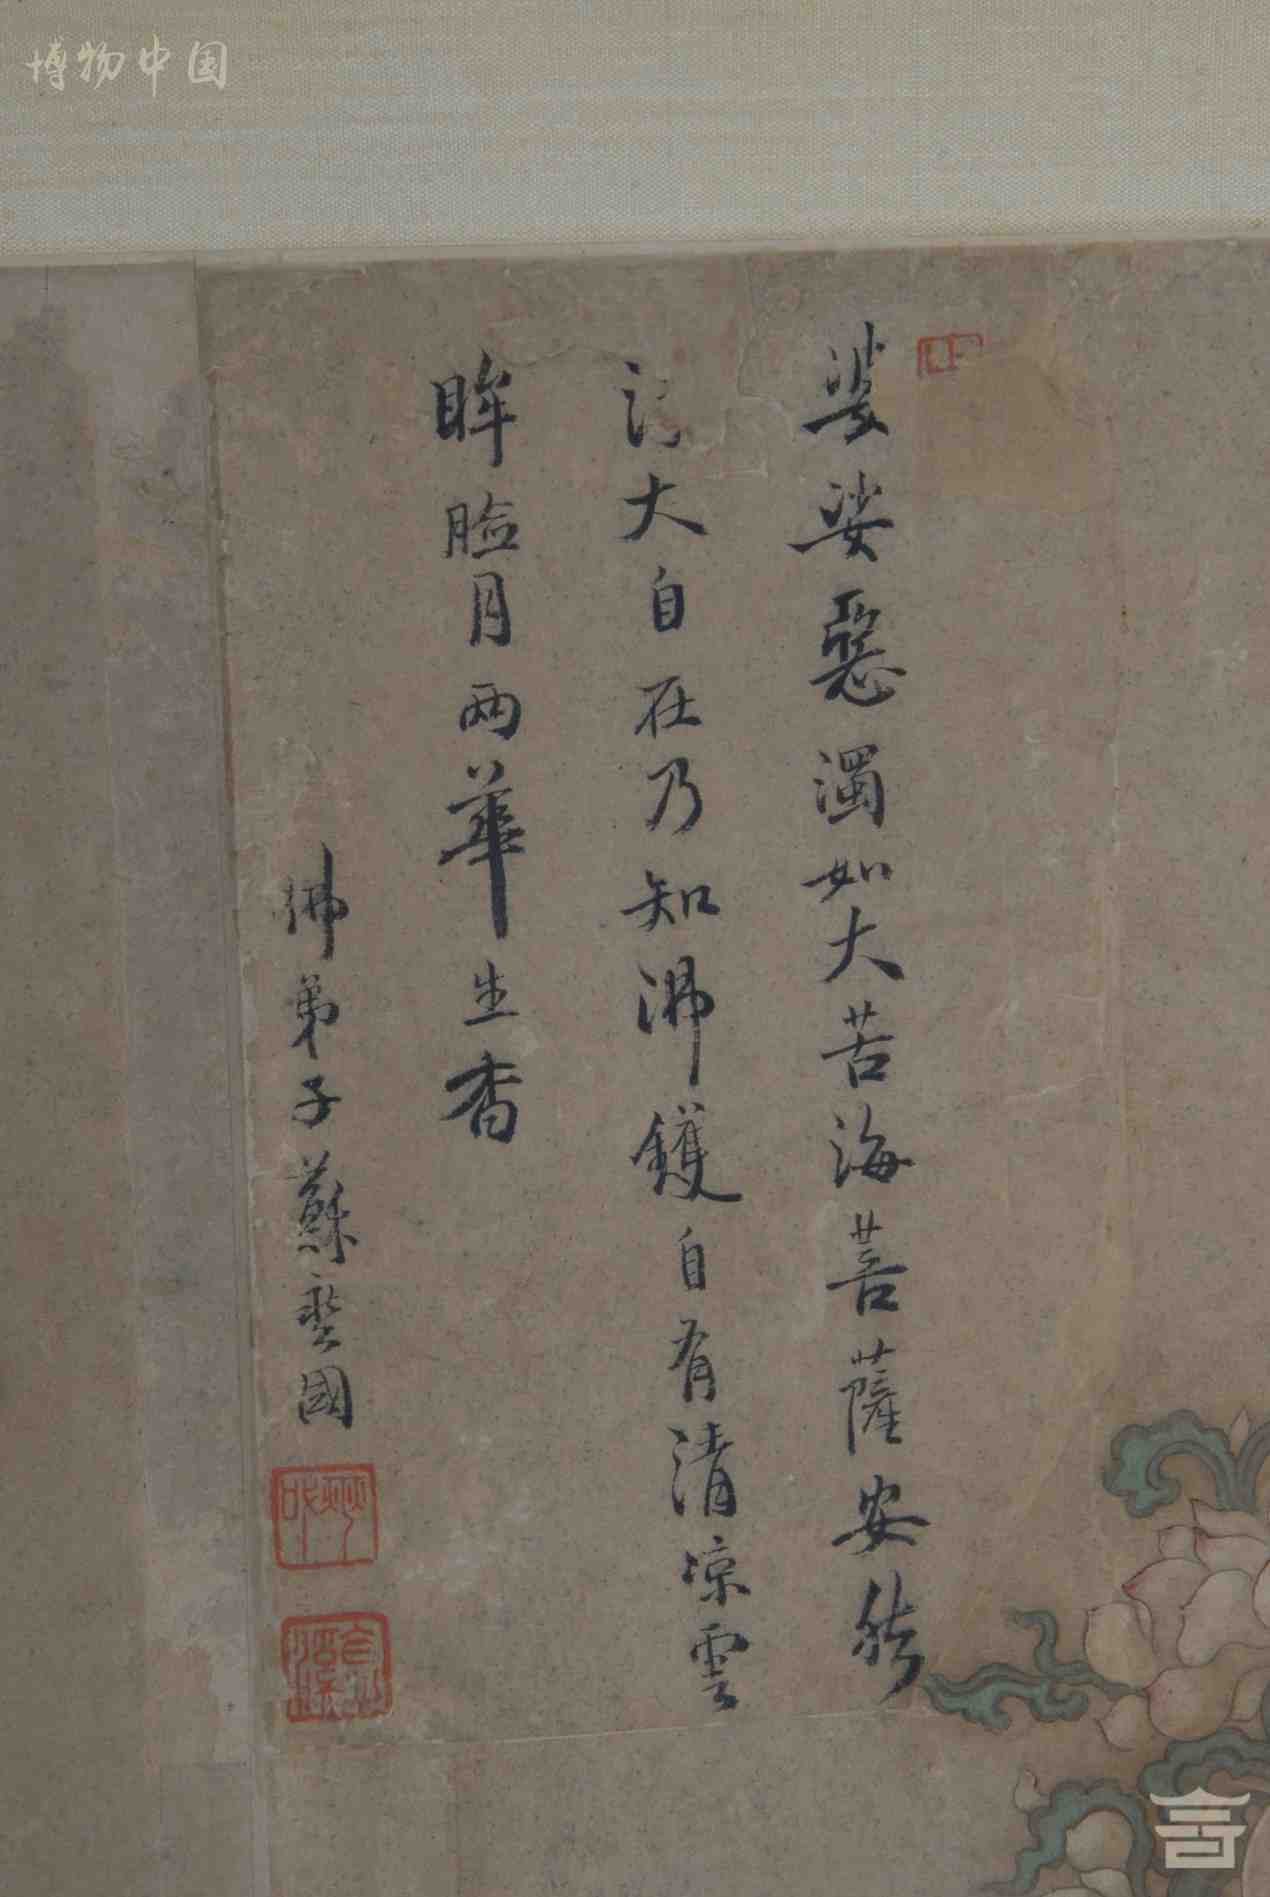 博物中国
婆娑惡濁如大苦海菩薩安能
大自在乃知沸鑊自有清凉雲
眸臉月兩華生香
佛弟子蘇國